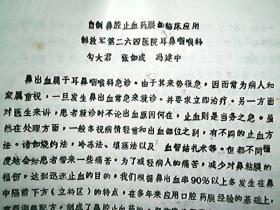 自制鼻腔止血药膜的临床应用
解放军第二六四医院耳鼻咽喉科
勾大君 张如成 冯建中
鼻出血属于耳鼻咽喉科急诊。由于其来势很急，因而常为病人和
家属重视，一旦发生鼻出血常急来急诊。并要求立即治疗。另一方面
对医生来讲，患者就诊时不论出血原因何在，止血则是当务之急。虽
然在处理方面，一般多视病情轻重和出血部位之别，有不同的止血方
法：诸如烧灼法，冷冻法、填塞法以及血管结扎术等。但都不同
度地会给患者带来一些痛苦。为了减轻病人的痛苦，减少对鼻粘膜的
损伤，达到迅速止血的目的，我们根据鼻出血率90%以上多发生在鼻
中隔前下方（立特区）的特点，在多年来应用口腔药膜经验的基础上